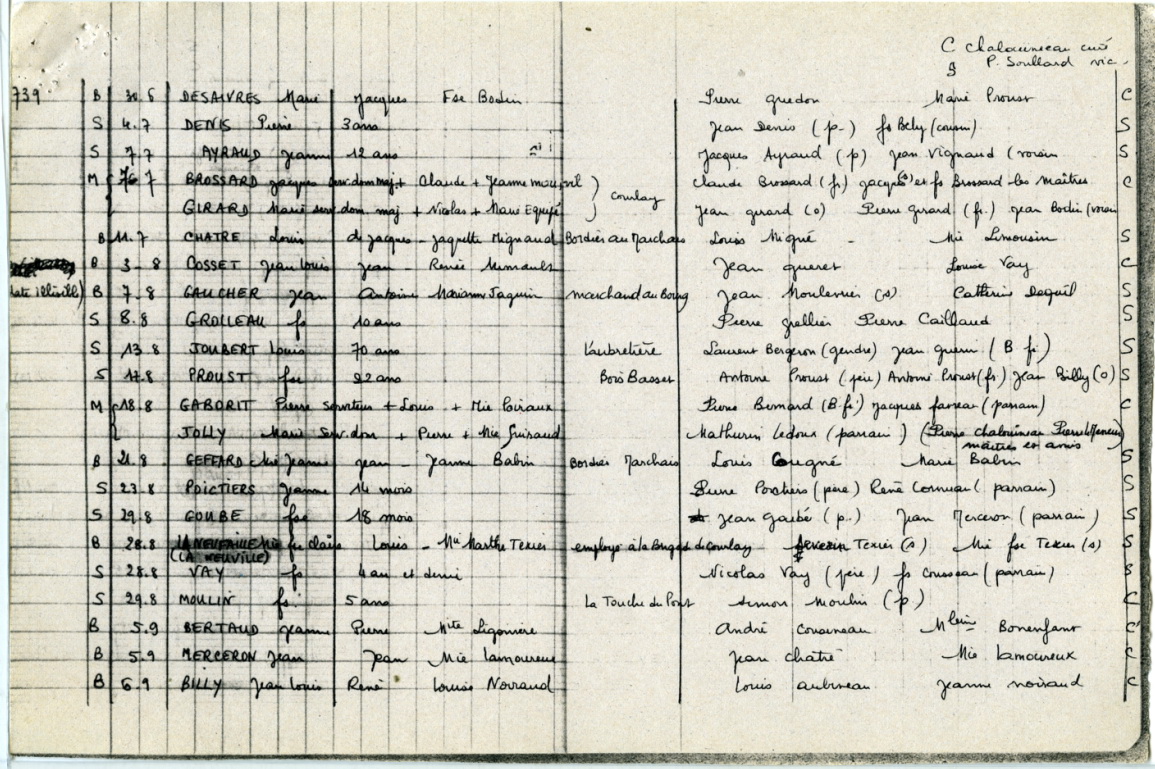 C Chalouineau curé
S P. Soullard vic.
739 B 30.6 DESAIVRES Marie Jacques Fse Bodin Pierre Guedon Marie Proust C
S 4.7 DENIS Pierre 3 ans Jean Denis (p.) fs Bely (cousin) S
S 7.7 AYRAUD Jeanne 12 ans Jacques Ayraud (p) Jean Vignaud (voisin S
M 7 BROSSARD Jacques serv dom maj + Claude + Jeanne Claude Brossard (fr) Jacques et fs Brossard les Maîtres C
GIRARD Marie serv. dom. maj + Nicolas + Marie Equipé } Courlay Jean Girard (o) Pierre Girard (fr.) Jean Bodin (voisin
B 11.7 CHATRE Louis de Jacques - Jaquette Mignaud Bordier au Marchais Louis Migné - Mie Limousin S
B 3-8 COSSET Jean Louis Jean - Renée Minault Jean Gueret Louise Vay C
(date illisible) B 7.8 GAUCHER Jean Antoine Marianne Jaquin marchand au Bourg Jean Moulennier (s). Catherine S
S 8.8 GROLLEAU fs 10 ans Pierre Grellier Pierre Caillaud S
S 13.8 JOUBERT Louis 70 ans L'aubretière Laurent Bergeron (gendre) Jean Guerin (B fr.) S
S 17.8 PROUST fse 22 ans Bois Basset Antoine Proust (père) Antoine Proust (fr) Jean Billy (o) S
M 18.8 GABORIT Pierre serviteur + Louis + Mie Poiraux Pierre Bernard (B.fr.) Jacques (parrain) C
JOLLY Marie Serv. dom + Pierre + Mie Guiraud Mathurin Ledoux (parrain) (Pierre Chalouineau Pierre
maîtres et amis
B 21.8 GEFFARD Mie Jeanne Jean - Jeanne Babin Bordier Marchais Louis Gougné Marie Babin S
S 23.8 POICTIERS Jeanne 14 mois Pierre Poictiers (père) René Cornuau (parrain) S
S 29.8 GOUBE fse 18 mois Jean (p.) Jean Merceron (parrain) S
B 28.8 fse Claire Louis - Mie Marthe Texier employé à la Brigade de Courlay Severin Texier (s) Mie fse Texier (s) S
(LA NEUVILLE)
S 28.8 VAY fs 4 an et demi Nicolas Vay (père) fs Cousseau (parrain) S
S 29.8 MOULIN fs. 5 ans La Touche du Pont Simon Moulin (p) C
B 5.9 BERTAUD Jeanne Pierre Mite Ligonière André Cousineau Mleine Bonenfant C
B 5.9 MERCERON Jean Jean Mie Lamoureux Jean Chatré Mie Lamoureux C
B 6.9 BILLY Jean Louis René Louise Noiraud Louis Aubineau Jeanne Noiraud C